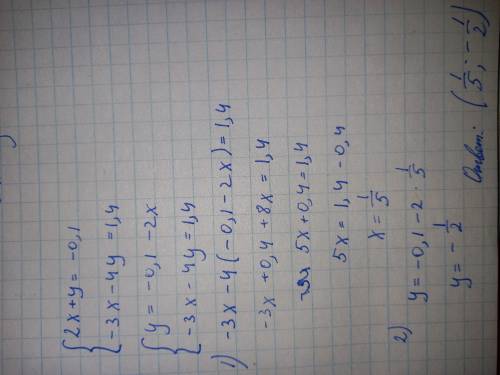 { 2x + y = -0,1
{ -3x - 4y = 1,4
{ y = -0,1 - 2x
{ -3x - 4y = 1,4
1) -3x - 4(-0,1 - 2x) = 1,4
-3x + 0,4 + 8x = 1,4
5x + 0,4 = 1,4
5x = 1,4 - 0,4
x = 1/5
2) y = -0,1 - 2 · 1/5
y = - 1/2
Ответ: (1/5; - 1/2)